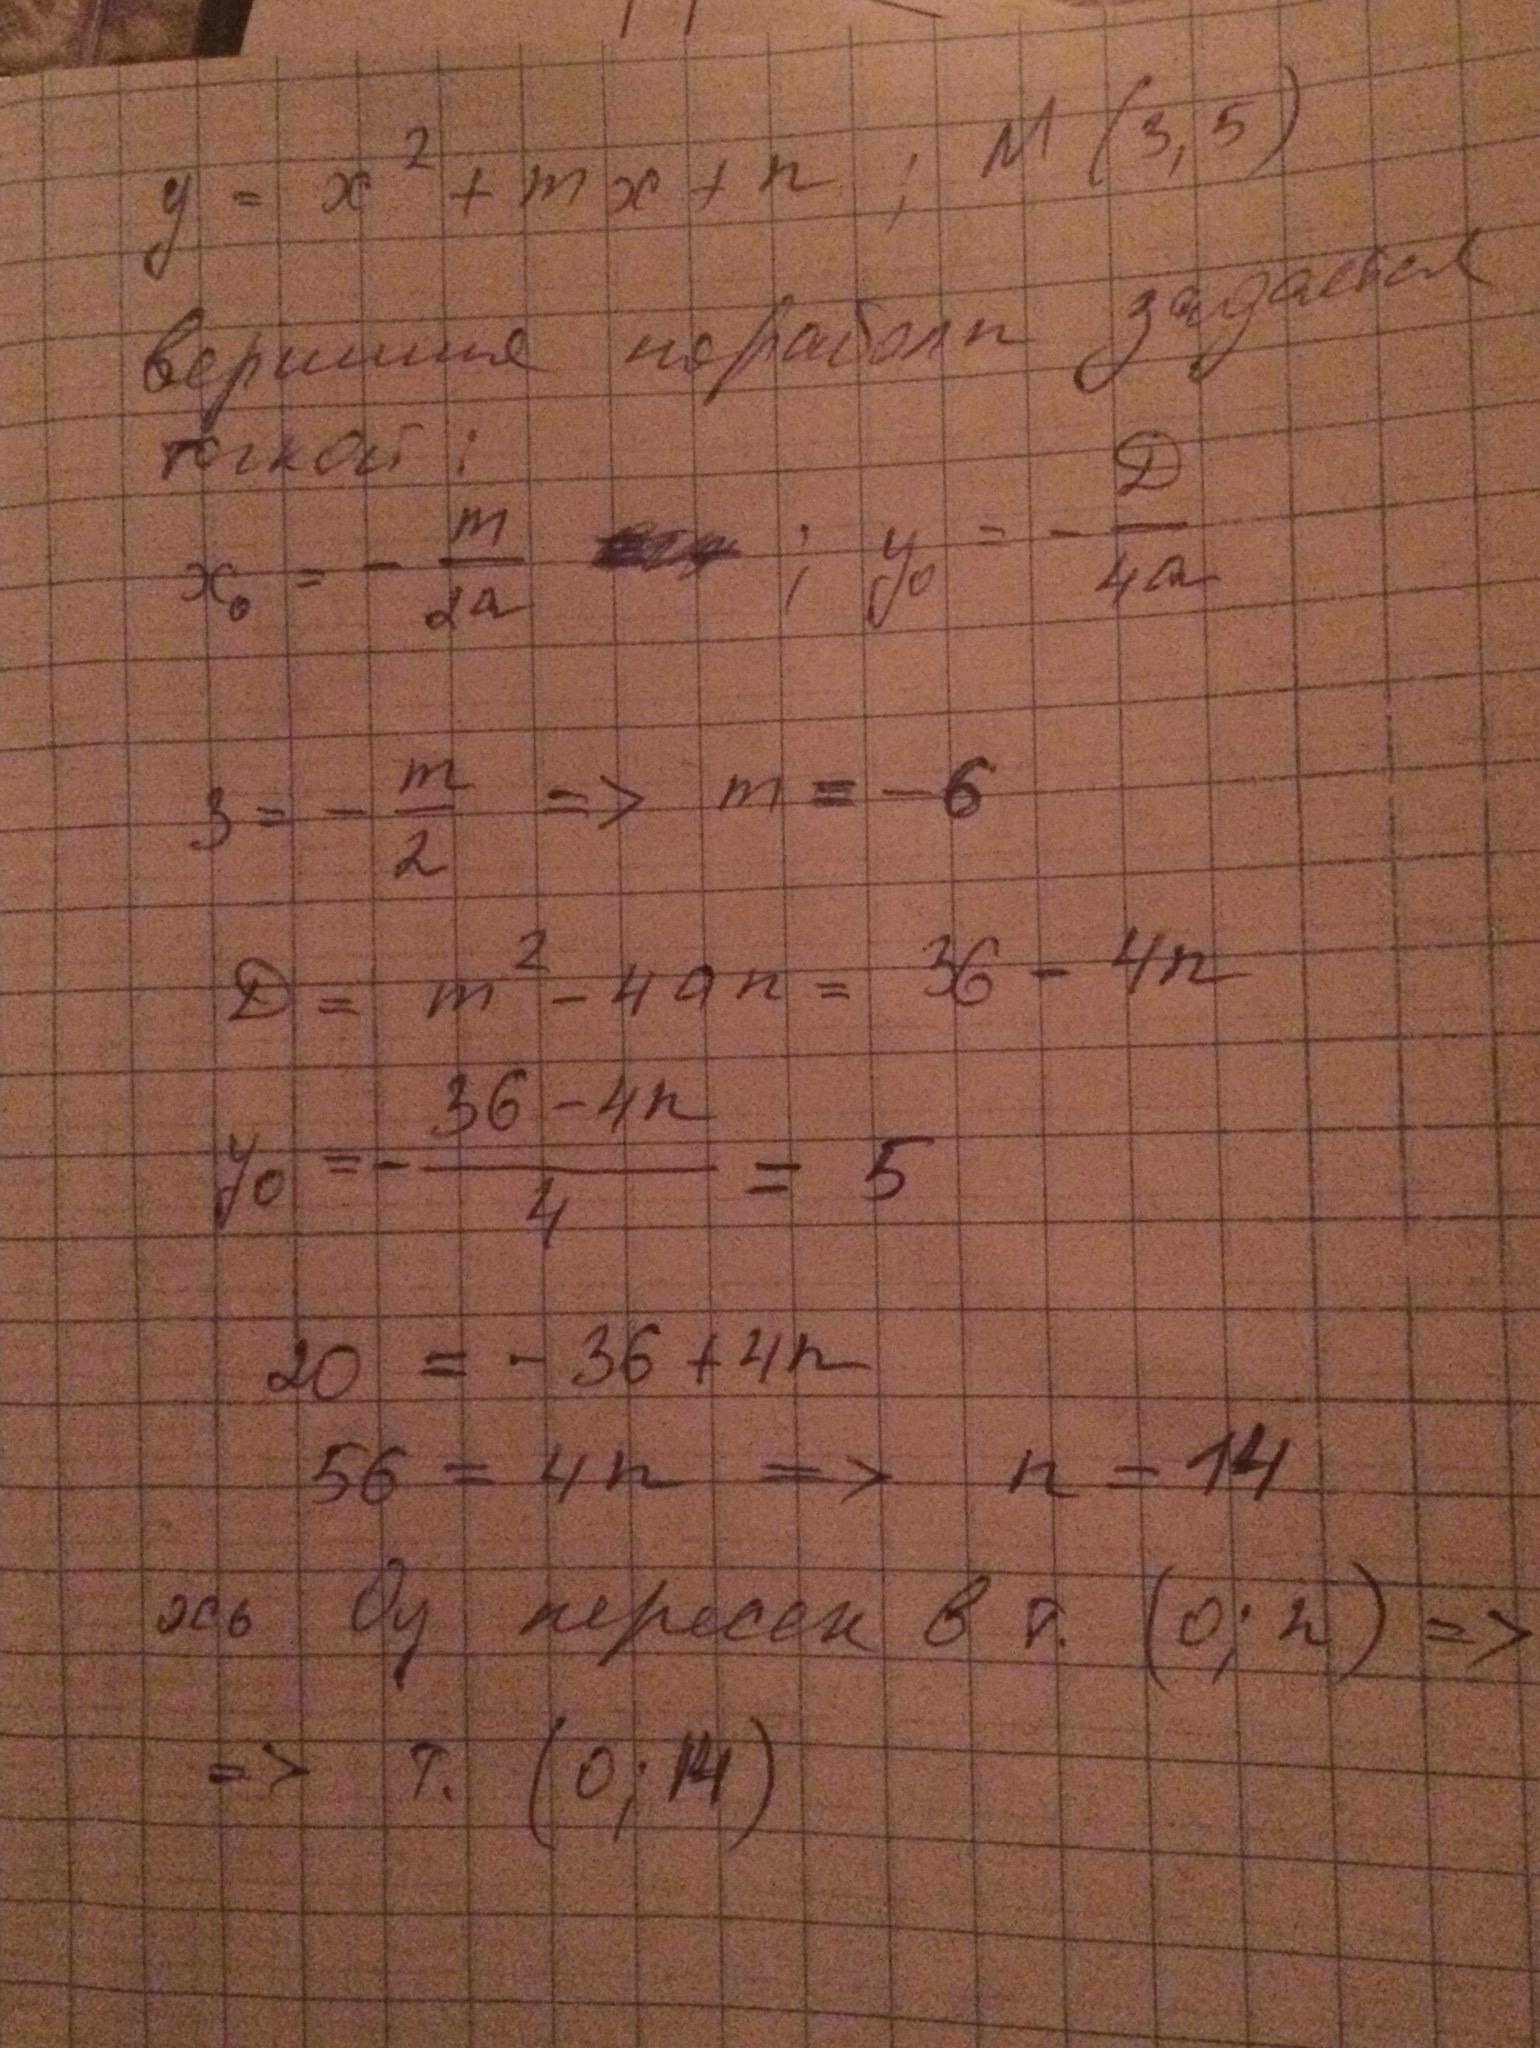 y = x² + mx + n ; М (3, 5)
вершина параболы задается
точкой :
x₀ = - m/2a ; y₀ = - D/4a
3 = - m/2 => m = -6
D = m² - 4an = 36 - 4n
y₀ = - (36 - 4n)/4 = 5
20 = - 36 + 4n
56 = 4n => n = 14
ось Оу пересек в т. (0; n) =>
=> т. (0; 14)